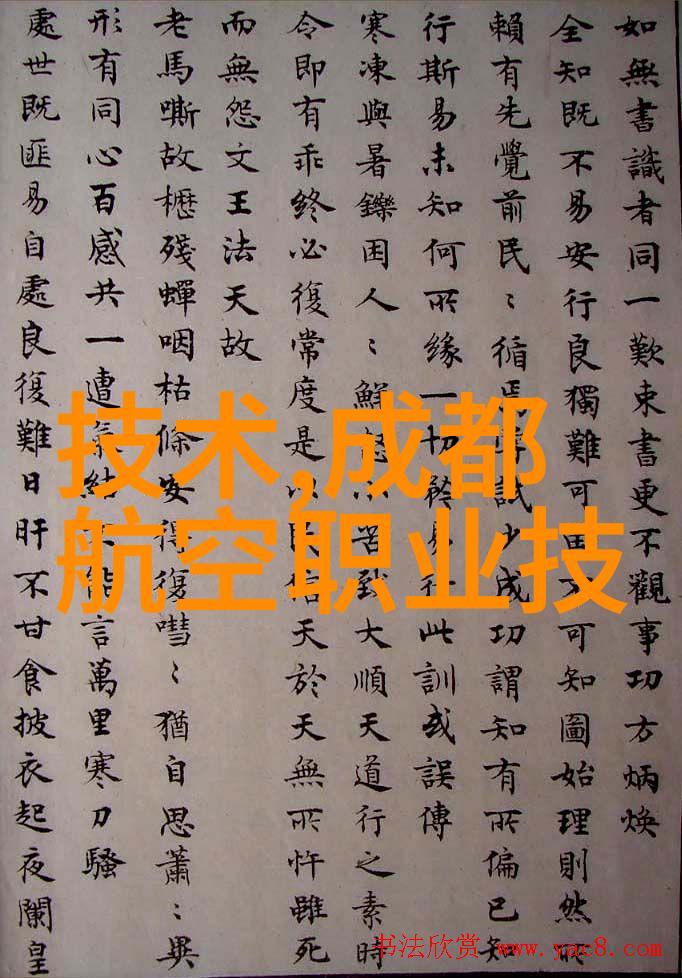 如無書識者同一歎束書更不觀事功方炳煥
全知既不易安行良獨難可由不可知圖始理則然所
賴有先覺前民〻循焉試少成功謂知有所偏已知
行斯易未知何所緣一切矜易行此訓或誤傳
寒凍與暑鑠困人〻鮮怨以苦致大順天道行之素時
令即有乖終必復常度是以民信天於天無所忤雖死
而無怨文王法天故
老馬嘶故櫪殘蟬咽枯條安得復嘒〻猶自思蕭〻異
形有同心百感共一遭氣結不能言萬里寒刀騷
處世既匪易自處良復難日旰不甘食披衣起夜闌皇
技术,成都
航空职业技
书法欣赏 www.yac8.com